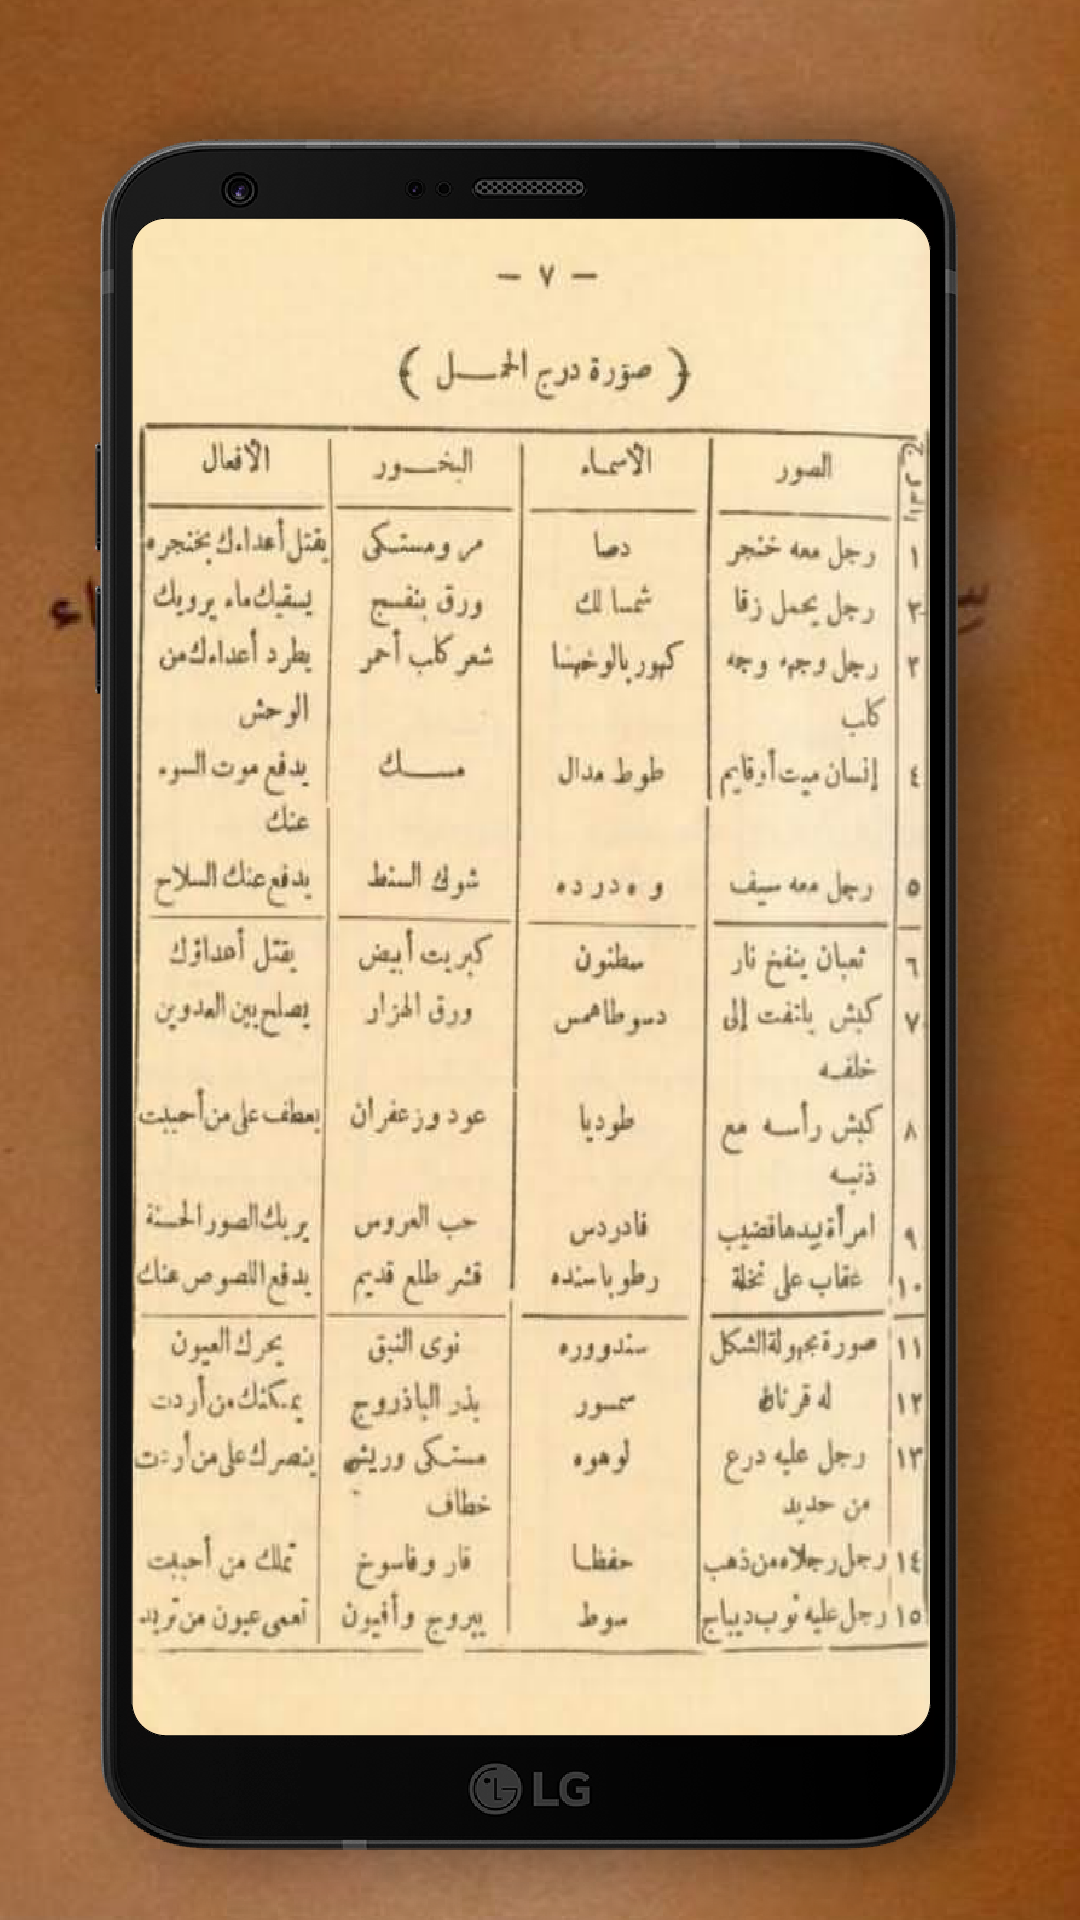 — ٧ —
( صورة درج الحمـــل )
الصور الأسماء البخــور الأفعال
١ رجل معه خنجر دصا مر ومستكى يقتل أعداءك بخنجره
٢ رجل يحمل زقا شمسا لك ورق بنفسج يسقيك ماء يرويك
٣ رجل وجهه وجه شعر كلب أحمر يطرد أعداءك من
كلب الوحش
٤ إنسان ميت أو قايم طوط مدال مســـك يدفع موت السوء
عنك
٥ رجل معه سيف و ه د ر د ه شوك السنط يدفع عنك السلاح
٦ ثعبان ينفخ نار سطنون كبريت أبيض يقتل أعداؤك
٧ كبش يلتفت إلى دسوطاهمس ورق الهزار يصلح بين العدوين
خلفـه
٨ كبش رأسـه مع طوديا عود وزعفران يعطف على من أحببت
ذنبـه
٩ امرأة بيدها قضيب فادردس حب العروس يريك الصور الحسنة
١٠ عقاب على نخلة رطوباسنده قشر طلع قديم يدفع اللصوص عنك
١١ صورة مجهولة الشكل سندووره نوى النبق يحرك العيون
١٢ له قرنان سمسور بذر الباذروج يمكنك من أردت
١٣ رجل عليه درع لوهوه مستكى وريش ينصرك على من أردت
من حديد خطاف
١٤ رجل رجلاه من ذهب حفظـا قار وفاسوخ تملك من أحببت
١٥ رجل عليه ثوب ديباج سوط يبروج وأفيون تعمى عيون من تريد
LG